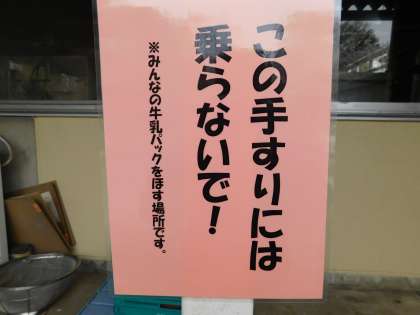 この手すりには
乗らないで！
※みんなの牛乳パックをほす場所です。